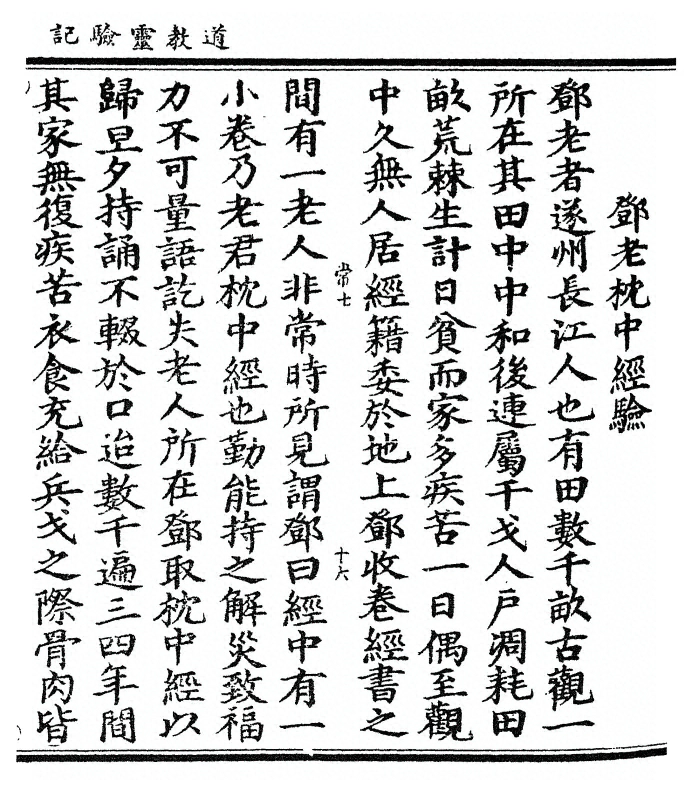 道教靈驗記
鄧老枕中經驗
鄧老者遂州長江人也有田數千畝古觀一
所在其田中中和後連屬干戈人戶凋耗田
畝荒棘生計日貧而家多疾苦一日偶至觀
中久無人居經籍委於地上鄧收卷經書之
常七
十六
間有一老人非常時所見謂鄧曰經中有一
小卷乃老君枕中經也勤能持之解災致福
力不可量語訖失老人所在鄧取枕中經以
歸旦夕持誦不輟於口迨數千遍三四年間
其家無復疾苦衣食充給兵戈之際骨肉皆